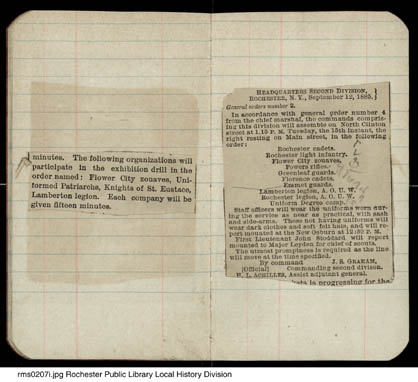 minutes. The following organizations will
participate in the exhibition drill in the
order named: Flower City zouaves, Uni-
formed Patriarchs, Knights of St. Eustace,
Lamberton legion. Each company will be
given fifteen minutes.
HEADQUARTERS SECOND DIVISION,
ROCHESTER, N. Y., September 12, 1885.
General orders number 2.
In accordance with general order number 4
from the chief marshal, the commands compris-
ing this division will assemble on North Clinton
street at 1.15 P. M. Tuesday, the 15th instant, the
right resting on Main street, in the following
order:
Rochester cadets.
Rochester light infantry.
Flower City zouaves.
Powers rifles.
Greenleaf guards.
Florence cadets.
Emmet guards.
Lamberton legion, A. O. U. W.
Rochester legion, A. O. U. W.
Uniform Degree camp.
Staff officers will wear the uniforms worn dur-
ing the service as near as practical, with sash
and side-arms. Those not having uniforms will
wear dark clothes and soft felt hats, and will re-
port mounted at the New Osburn at 12:30 P. M.
First Lieutenant John Stoddard will report
mounted to Major Leyden for chief of scouts.
The utmost promptness is required as the line
will move at the time specified.
By command J. S. GRAHAM,
[Official] Commanding second division.
H. L. ACHILLES, Assistant adjutant general.
is progressing for the
rms0207i.jpg Rochester Public Library Local History Division